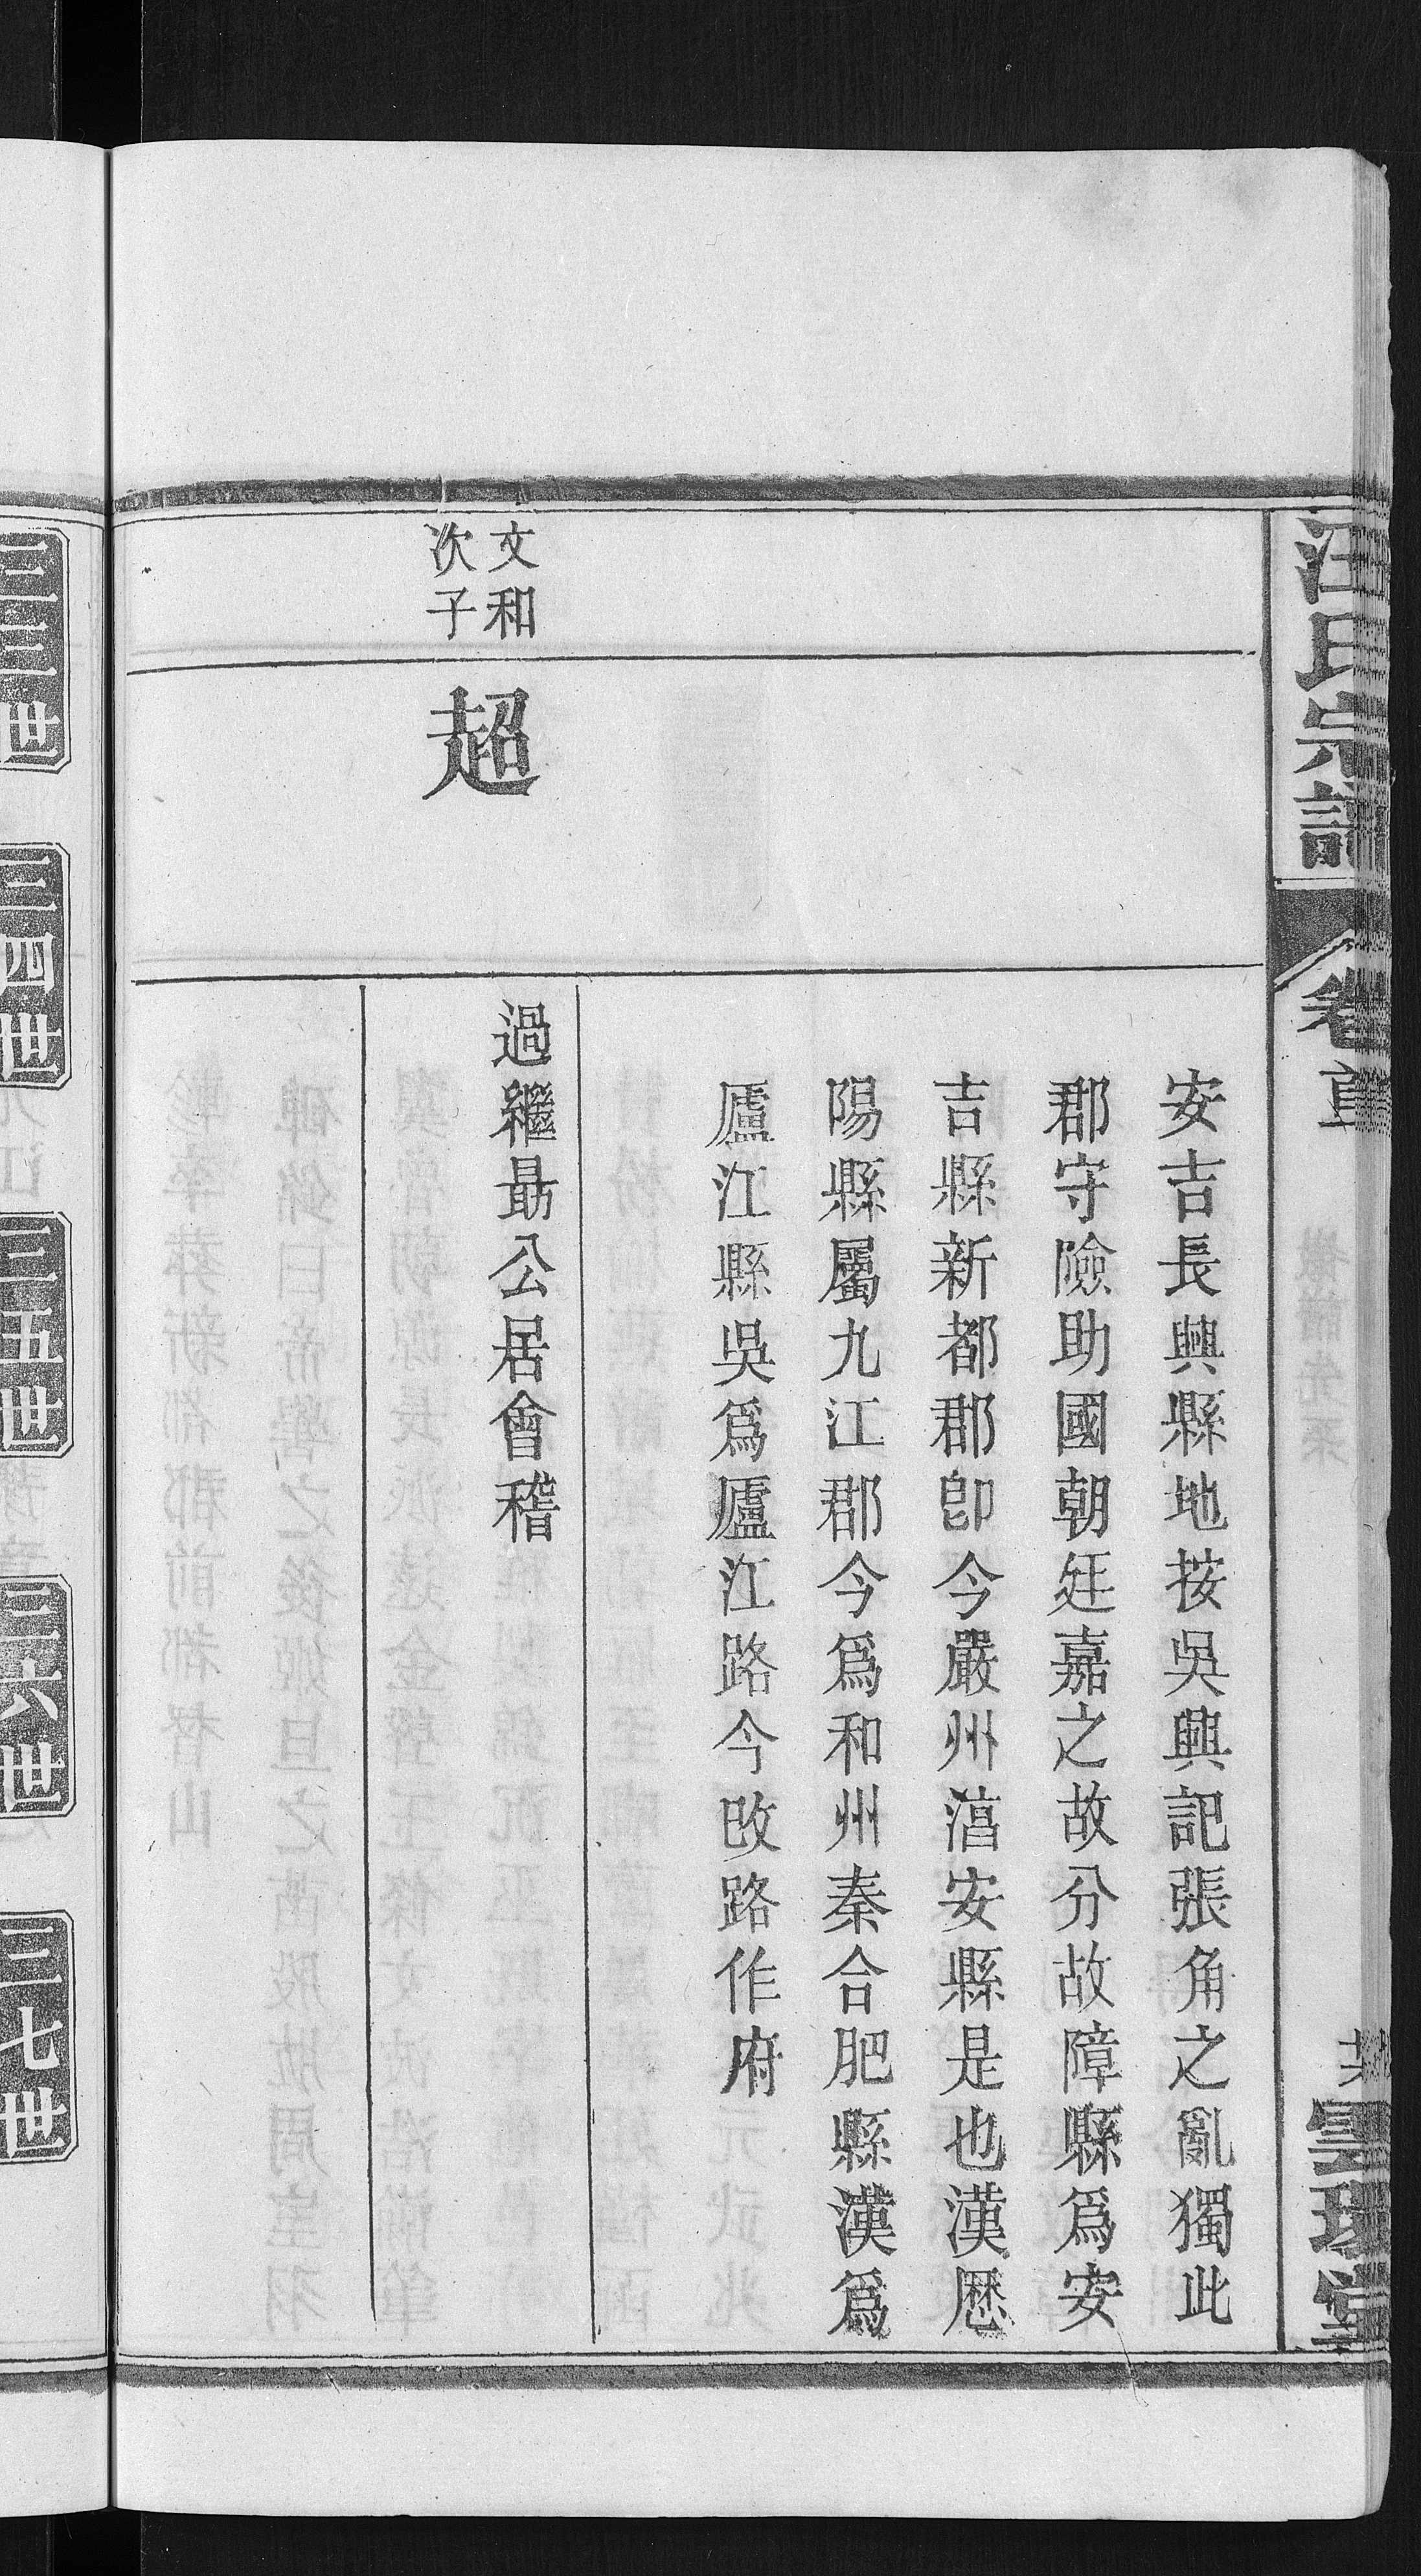 汪氏宗譜
卷首
安吉長興縣地按吳興記張角之亂獨此
郡守險助國朝廷嘉之故分故障縣爲安
吉縣新都郡卽今嚴州湻安縣是也漢歷
陽縣屬九江郡今爲和州秦合肥縣漢爲
廬江縣吳爲廬江路今改路作府
文和
次子
超
過繼勗公居會稽
三三世
三四世
三五世
三六世
三七世